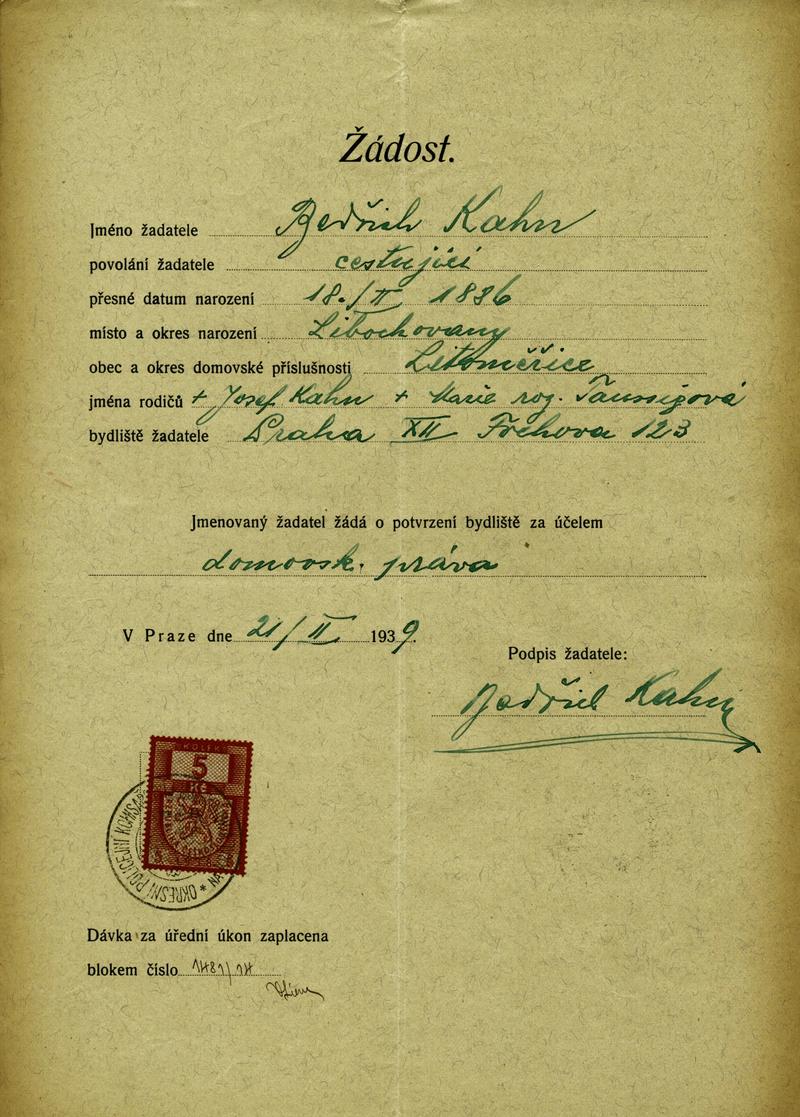 Žádost.
Jméno žadatele Bedřich Kahn
povolání žadatele cestující
přesné datum narození 18./II. 1886
místo a okres narození Libochovany
obec a okres domovské příslušnosti Litoměřice
jména rodičů + Josef Kahn + Marie roz. Taussigová
bydliště žadatele Praha XII
123
Jmenovaný žadatel žádá o potvrzení bydliště za účelem
domovsk. práva
V Praze dne 21/II. 1939.
Podpis žadatele:
Bedřich Kahn
KOLEK
5
Kč
OKRESNÍ POLICEJNÍ KOMISA
Dávka za úřední úkon zaplacena
blokem číslo